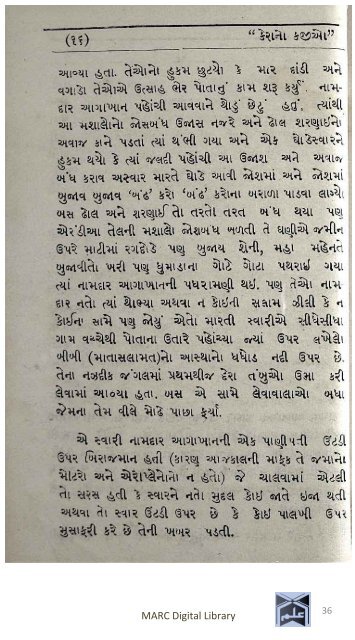 (૧૬) “કેરાનો કજીઓ”
આવ્યા હતા. તેઓનો હુકમ છુટયો કે માર દાંડી અને
વગાડો તેઓએ ઉત્સાહ ભેર પોતાનું કામ શરૂ કર્યું. નામ-
દાર આગાખાન પહોંચી આવવાને થોડું છેટું હતું. ત્યાંથી
આ મશાલોનો જોસબંધ ઉજાસ નજરે અને ઢોલ શરણાઈનો
અવાજ કાને પડતાં ત્યાં થંભી ગયા અને એક ઘોડેસ્વારને
હુકમ થયો કે ત્યાં જલદી પહોંચી આ ઉજાશ અને અવાજ
બંધ કરાવ અસ્વાર મારતે ઘોડે આવી જોશમાં અને જોશમાં
બુજાવ બુજાવ ‘બંઢ’ કરો ‘બંઢ’ કરોના બરાળા પાડવા લાગ્યો
બસ ઢોલ અને શરણાઈ તો તરતો તરત બંધ થયા પણ
એરંડીઆ તેલની મશાલો જોશબંધ બળતી તે ઘણીએ જમીન
ઉપરે માટીમાં રગદોડે પણ બુજાય શેની, મહા મહેનતે
બુજાવીતો ખરી પણ ધુમાડાના ગોટે ગોટા પથરાઈ ગયા
ત્યાં નામદાર આગાખાનની પધરામણી થઇ. પણ તેઓ નામ-
દાર નતો ત્યાં થોભ્યા અથવા ન કોઈની સલામ ઝીલી કે ન
કોઈના સામે પણ જોયું એતો મારતી સ્વારીએ સીધેસીધા
ગામ વચ્ચેથી પોતાના ઉતારે પહોંચ્યા જ્યાં ઉપર લખેલો
બીબી (માતાસલામત)નો આસ્થાનો ધધોડ નદી ઉપર છે.
તેના નઝદીક જંગલમાં પ્રથમથીજ ડેરા તંબુઓ ઉભા કરી
લેવામાં આવ્યા હતા. બસ એ સામે લેવાવાલાઓ બધા
જેમના તેમ વીલે મોઢે પાછા ફર્યા.
એ સ્વારી નામદાર આગાખાનની એક પાણીપતી ઉંટડી
ઉપર બિરાજમાન હતી (કારણ આજકાલની માફક તે જમાનો
મોટરો અને એરોપ્લેનોનો ન હતો) જે ચાલવામાં એટલી
તો સરસ હતી કે સ્વારને નતો મુદ્દલ કોઈ જાતે ઇજા થતી
અથવા તો સ્વાર ઉંટડી ઉપર છે કે કોઈ પાલખી ઉપર
મુસાફરી કરે છે તેની ખબર પડતી.
MARC Digital Library
36